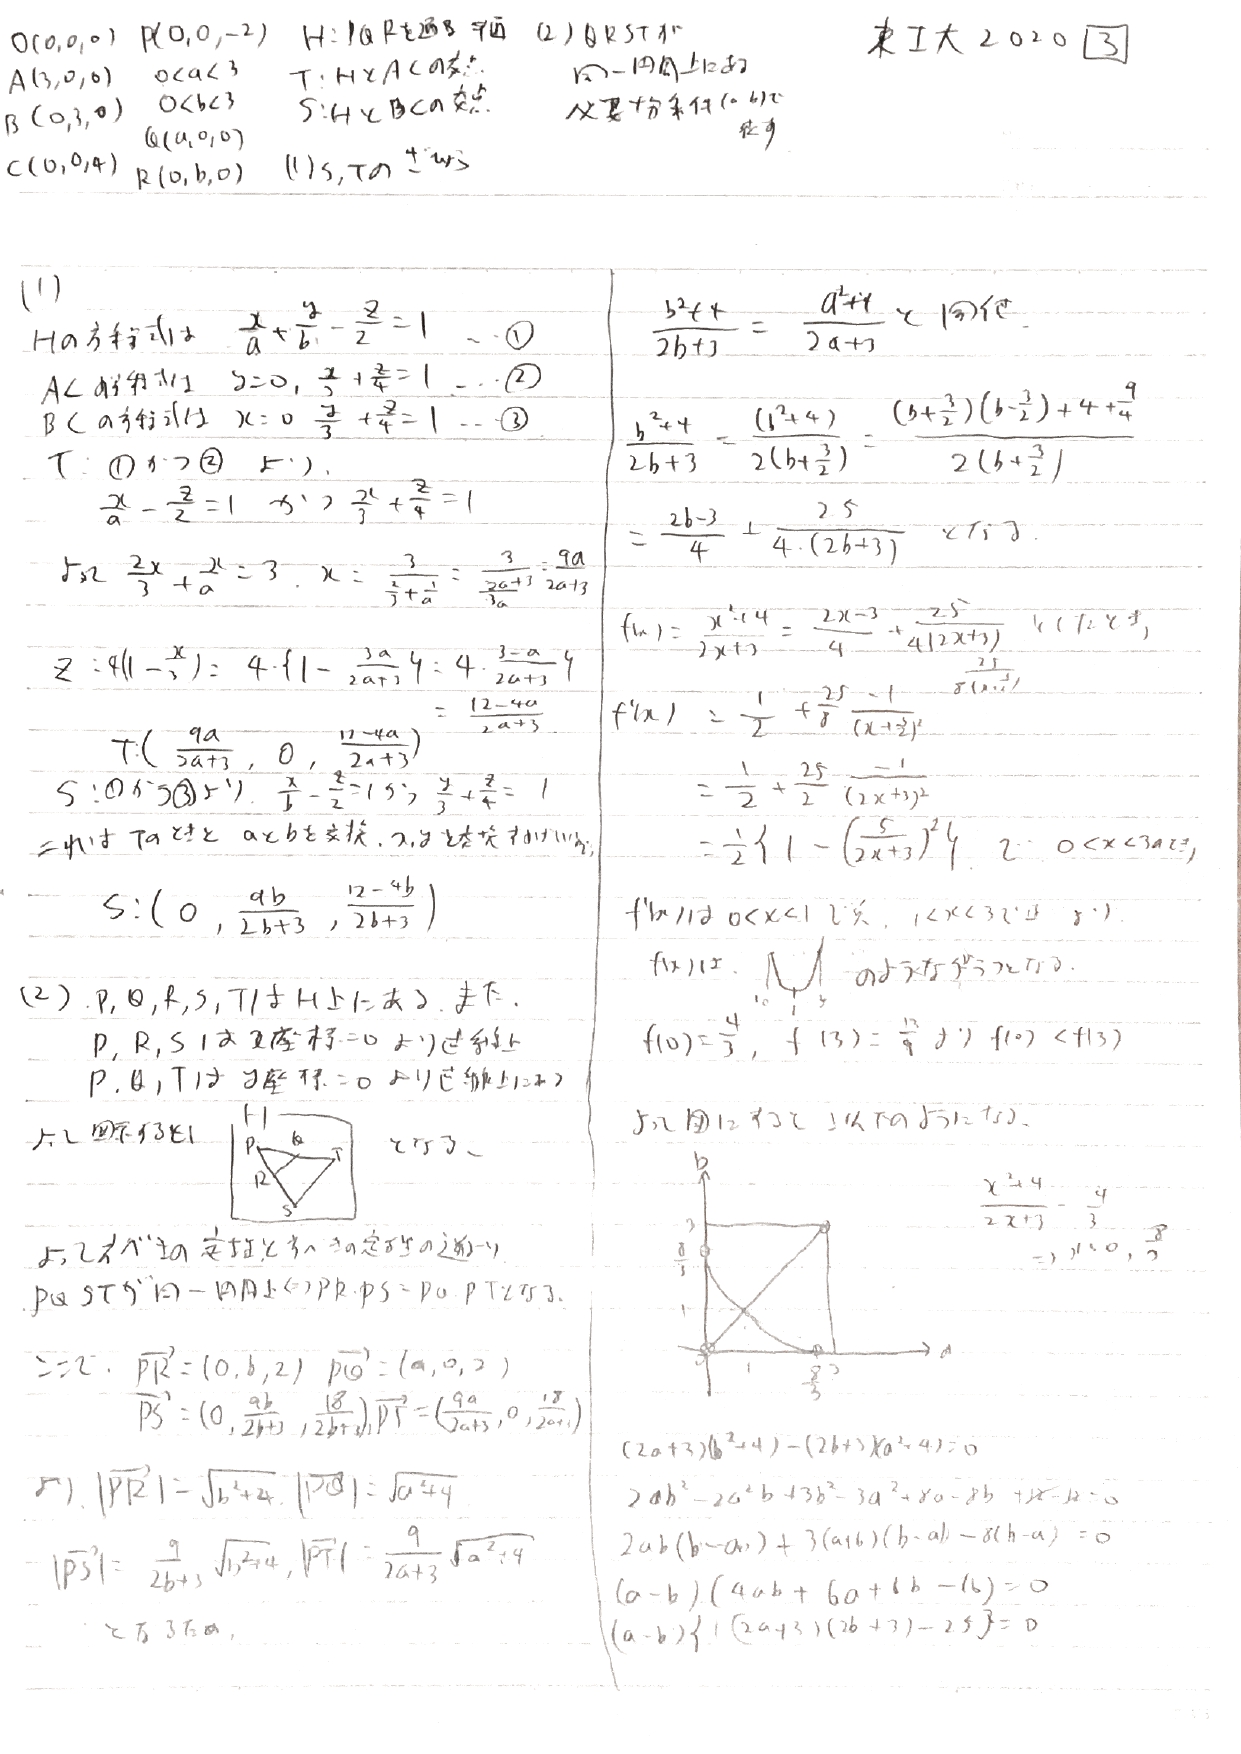 東工大 2020 3
O(0,0,0) P(0,0,-2) H:PQRを通る平面 (2) QRSTが
A(3,0,0) 0<a<3 T:HとACの交点 同一円周上にある
B(0,3,0) 0<b<3 S:HとBCの交点 必要十分条件(a,b)で
Q(a,0,0) 示す
C(0,0,4) R(0,b,0) (1) S,Tの
(1)
Hの方程式は x/a + y/b - z/2 = 1 …①
ACの方程式は y=0, x/3 + z/4 = 1 …②
BCの方程式は x=0 y/3 + z/4 = 1 …③
T: ①かつ②より、
x/a - z/2 = 1 かつ x/3 + z/4 = 1
よって 2x/3 + x/a = 3. x = 3/(2/3 + 1/a) = 3/((2a+3)/3a) = 9a/(2a+3)
z = 4(1 - x/3) = 4・{1 - 3a/(2a+3)} = 4・(3-a)/(2a+3)
= (12-4a)/(2a+3)
T:(9a/(2a+3), 0, (12-4a)/(2a+3))
S:①かつ③より. x/b - z/2 = 1かつ y/3 + z/4 = 1
これはTのときと aとbを交換、x,yを交換すればいいので,
S:(0, 9b/(2b+3), (12-4b)/(2b+3))
(2) P,Q,R,S,TはH上にある. また.
P,R,Sはx座標=0より直線上
P,Q,Tはy座標=0より直線上にある
よって図示すると
H
P Q T
R
S
となる、
よって方べきの定理と方べきの定理の逆より
PQSTが同一円周上⇔PR・PS=PQ・PTとなる.
ここで. PR=(0,b,2) PQ=(a,0,2)
PS=(0, 9b/(2b+3), 18/(2b+3)), PT=(9a/(2a+3), 0, 18/(2a+3))
より. |PR|=√(b²+4). |PQ|=√(a²+4)
|PS|= 9/(2b+3) √(b²+4), |PT|= 9/(2a+3) √(a²+4)
となるため,
(b²+4)/(2b+3) = (a²+4)/(2a+3) と同値.
(b²+4)/(2b+3) = (b²+4)/(2(b+3/2)) = ((b+3/2)(b-3/2)+4+9/4)/(2(b+3/2))
= (2b-3)/4 + 25/(4・(2b+3)) となる.
f(x) = (x²+4)/(2x+3) = (2x-3)/4 + 25/(4(2x+3)) としたとき,
f'(x) = 1/2 + 25/8 -1/(x+3/2)²
= 1/2 + 25/2 -1/(2x+3)²
= 1/2{1 - (5/(2x+3))²}. で 0<x<3のとき,
f'(x)は 0<x<1で負, 1<x<3で正 より.
f(x)は. 0 1 3 のようなグラフとなる.
f(0)=4/3, f(3)=13/9 より f(0)<f(3)
よって図にすると 以下のようになる.
b
3
8/3
1
0 1 8/3 3 a
(x²+4)/(2x+3) = 4/3
⇒ x=0, 8/3
(2a+3)(b²+4)-(2b+3)(a²+4)=0
2ab²-2a²b+3b²-3a²+8a-8b+12-12=0
2ab(b-a)+3(a+b)(b-a)-8(b-a)=0
(a-b)(4ab+6a+6b-16)=0
(a-b){(2a+3)(2b+3)-25}=0